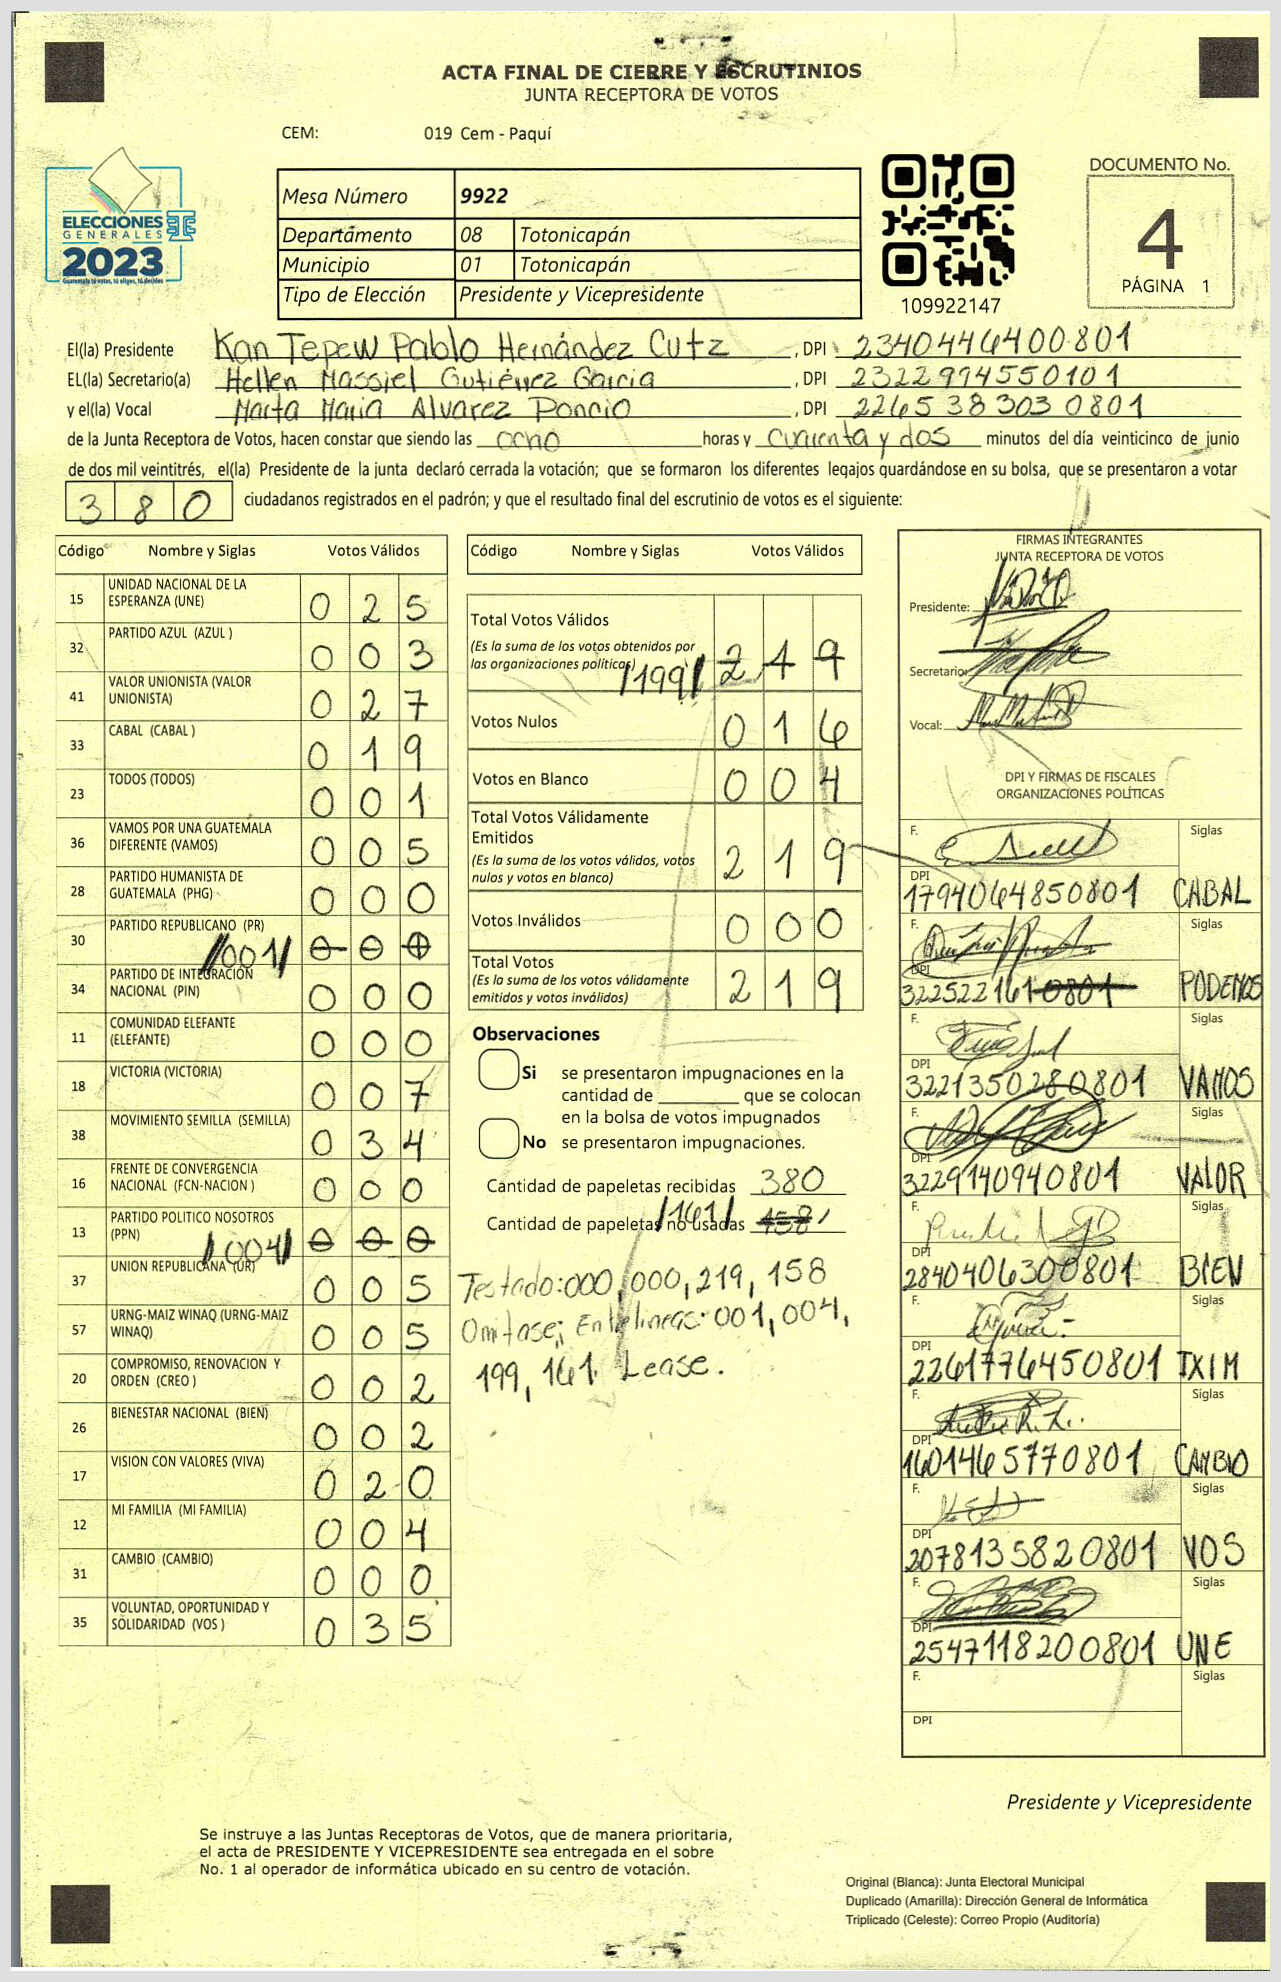 ACTA FINAL DE CIERRE Y ESCRUTINIOS
JUNTA RECEPTORA DE VOTOS
CEM: 019 Cem - Paquí
ELECCIONES
GENERALES
2023
Guatemala tú votas, tú eliges, tú decides
Mesa Número 9922
Departamento 08 Totonicapán
Municipio 01 Totonicapán
Tipo de Elección Presidente y Vicepresidente
109922147
DOCUMENTO No.
4
PÁGINA 1
El(la) Presidente Kan Tepew Pablo Hernández Cutz , DPI 2340446400801
EL(la) Secretario(a) Hellen Massiel Gutiérrez Garcia , DPI 2322994550101
y el(la) Vocal Marta Maria Alvarez Poncio , DPI 2265383030801
de la Junta Receptora de Votos, hacen constar que siendo las ocho horas y cuarenta y dos minutos del día veinticinco de junio
de dos mil veintitrés, el(la) Presidente de la junta declaró cerrada la votación; que se formaron los diferentes legajos guardándose en su bolsa, que se presentaron a votar
380 ciudadanos registrados en el padrón; y que el resultado final del escrutinio de votos es el siguiente:
Código Nombre y Siglas Votos Válidos
15 UNIDAD NACIONAL DE LA ESPERANZA (UNE) 025
32 PARTIDO AZUL (AZUL ) 003
41 VALOR UNIONISTA (VALOR UNIONISTA) 027
33 CABAL (CABAL ) 019
23 TODOS (TODOS) 001
36 VAMOS POR UNA GUATEMALA DIFERENTE (VAMOS) 005
28 PARTIDO HUMANISTA DE GUATEMALA (PHG) 000
30 PARTIDO REPUBLICANO (PR) //001// 000
34 PARTIDO DE INTEGRACIÓN NACIONAL (PIN) 000
11 COMUNIDAD ELEFANTE (ELEFANTE) 000
18 VICTORIA (VICTORIA) 007
38 MOVIMIENTO SEMILLA (SEMILLA) 034
16 FRENTE DE CONVERGENCIA NACIONAL (FCN-NACION ) 000
13 PARTIDO POLITICO NOSOTROS (PPN) //004// 000
37 UNION REPUBLICANA (UR) 005
57 URNG-MAIZ WINAQ (URNG-MAIZ WINAQ) 005
20 COMPROMISO, RENOVACION Y ORDEN (CREO ) 002
26 BIENESTAR NACIONAL (BIEN) 002
17 VISION CON VALORES (VIVA) 020
12 MI FAMILIA (MI FAMILIA) 004
31 CAMBIO (CAMBIO) 000
35 VOLUNTAD, OPORTUNIDAD Y SOLIDARIDAD (VOS ) 035
Código Nombre y Siglas Votos Válidos
Total Votos Válidos
(Es la suma de los votos obtenidos por
las organizaciones políticas) /199// 219
Votos Nulos 016
Votos en Blanco 004
Total Votos Válidamente
Emitidos
(Es la suma de los votos válidos, votos
nulos y votos en blanco) 219
Votos Inválidos 000
Total Votos
(Es la suma de los votos válidamente
emitidos y votos inválidos) 219
Observaciones
Si se presentaron impugnaciones en la
cantidad de ________ que se colocan
en la bolsa de votos impugnados
No se presentaron impugnaciones.
Cantidad de papeletas recibidas 380
Cantidad de papeletas no usadas /161/ 158
Testado:000,000,219,158
Omitase; Entrelineas:001,004,
199, 161. Lease.
FIRMAS INTEGRANTES
JUNTA RECEPTORA DE VOTOS
Presidente:
Secretario:
Vocal:
DPI Y FIRMAS DE FISCALES
ORGANIZACIONES POLÍTICAS
F. Siglas
DPI
1794064850801 CABAL
F. Siglas
DPI
3225221610801 PODEMOS
F. Siglas
DPI
3221350280801 VAMOS
F. Siglas
DPI
3229140940801 VALOR
F. Siglas
DPI
2840406300801 BIEN
F. Siglas
DPI
2261776450801 IXIM
F. Siglas
DPI
1601465770801 CAMBIO
F. Siglas
DPI
2078135820801 VOS
F. Siglas
DPI
2547118200801 UNE
F. Siglas
DPI
Presidente y Vicepresidente
Se instruye a las Juntas Receptoras de Votos, que de manera prioritaria,
el acta de PRESIDENTE Y VICEPRESIDENTE sea entregada en el sobre
No. 1 al operador de informática ubicado en su centro de votación.
Original (Blanca): Junta Electoral Municipal
Duplicado (Amarilla): Dirección General de Informática
Triplicado (Celeste): Correo Propio (Auditoría)